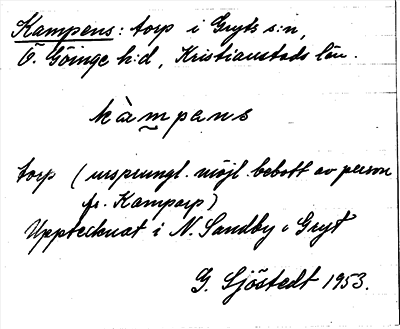 Kampens: torp i Gryts s:n,
Ö. Göinge h:d, Kristianstads län.
kàmpans
torp (ursprungl. möjl. bebott av person
fr. Kamparp)
Upptecknat i N. Sandby i Gryt
G. Sjöstedt 1953.